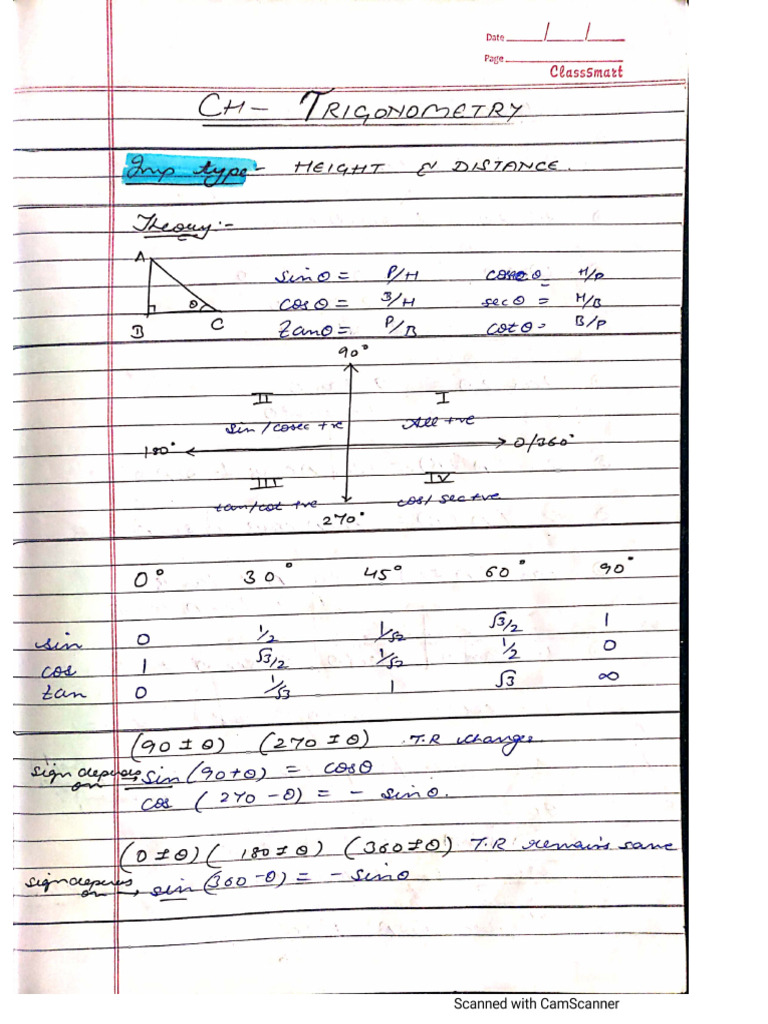 Date / /
Page
ClassSmart
CH- TRIGONOMETRY
Imp type - HEIGHT & DISTANCE.
Theory:-
A
B
C
θ
sinθ = P/H cosec θ = H/P
cosθ = B/H secθ = H/B
tanθ = P/B cotθ = B/P
90°
II I
sin/cosec +ve All +ve
180° 0/360°
III IV
tan/cot +ve cos/sec +ve
270°
0° 30° 45° 60° 90°
sin 0 1/2 1/√2 √3/2 1
cos 1 √3/2 1/√2 1/2 0
tan 0 1/√3 1 √3 ∞
(90 ± θ) (270 ± θ) T.R change
sign depends on sin (90+θ) = cosθ
cos (270 - θ) = - sinθ.
(0 ± θ) (180 ± θ) (360 ± θ) T.R remains same
sign depends on, sin (360 - θ) = - sinθ
Scanned with CamScanner